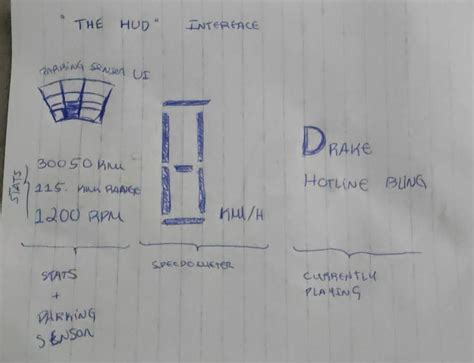 "THE HUD" INTERFACE
PARKING SENSOR UI
STATS
30050 KM
115. KM RANGE
1200 RPM
8
KM/H
DRAKE
HOTLINE BLING
STATS
+
PARKING
SENSOR
SPEEDOMETER
CURRENTLY
PLAYING